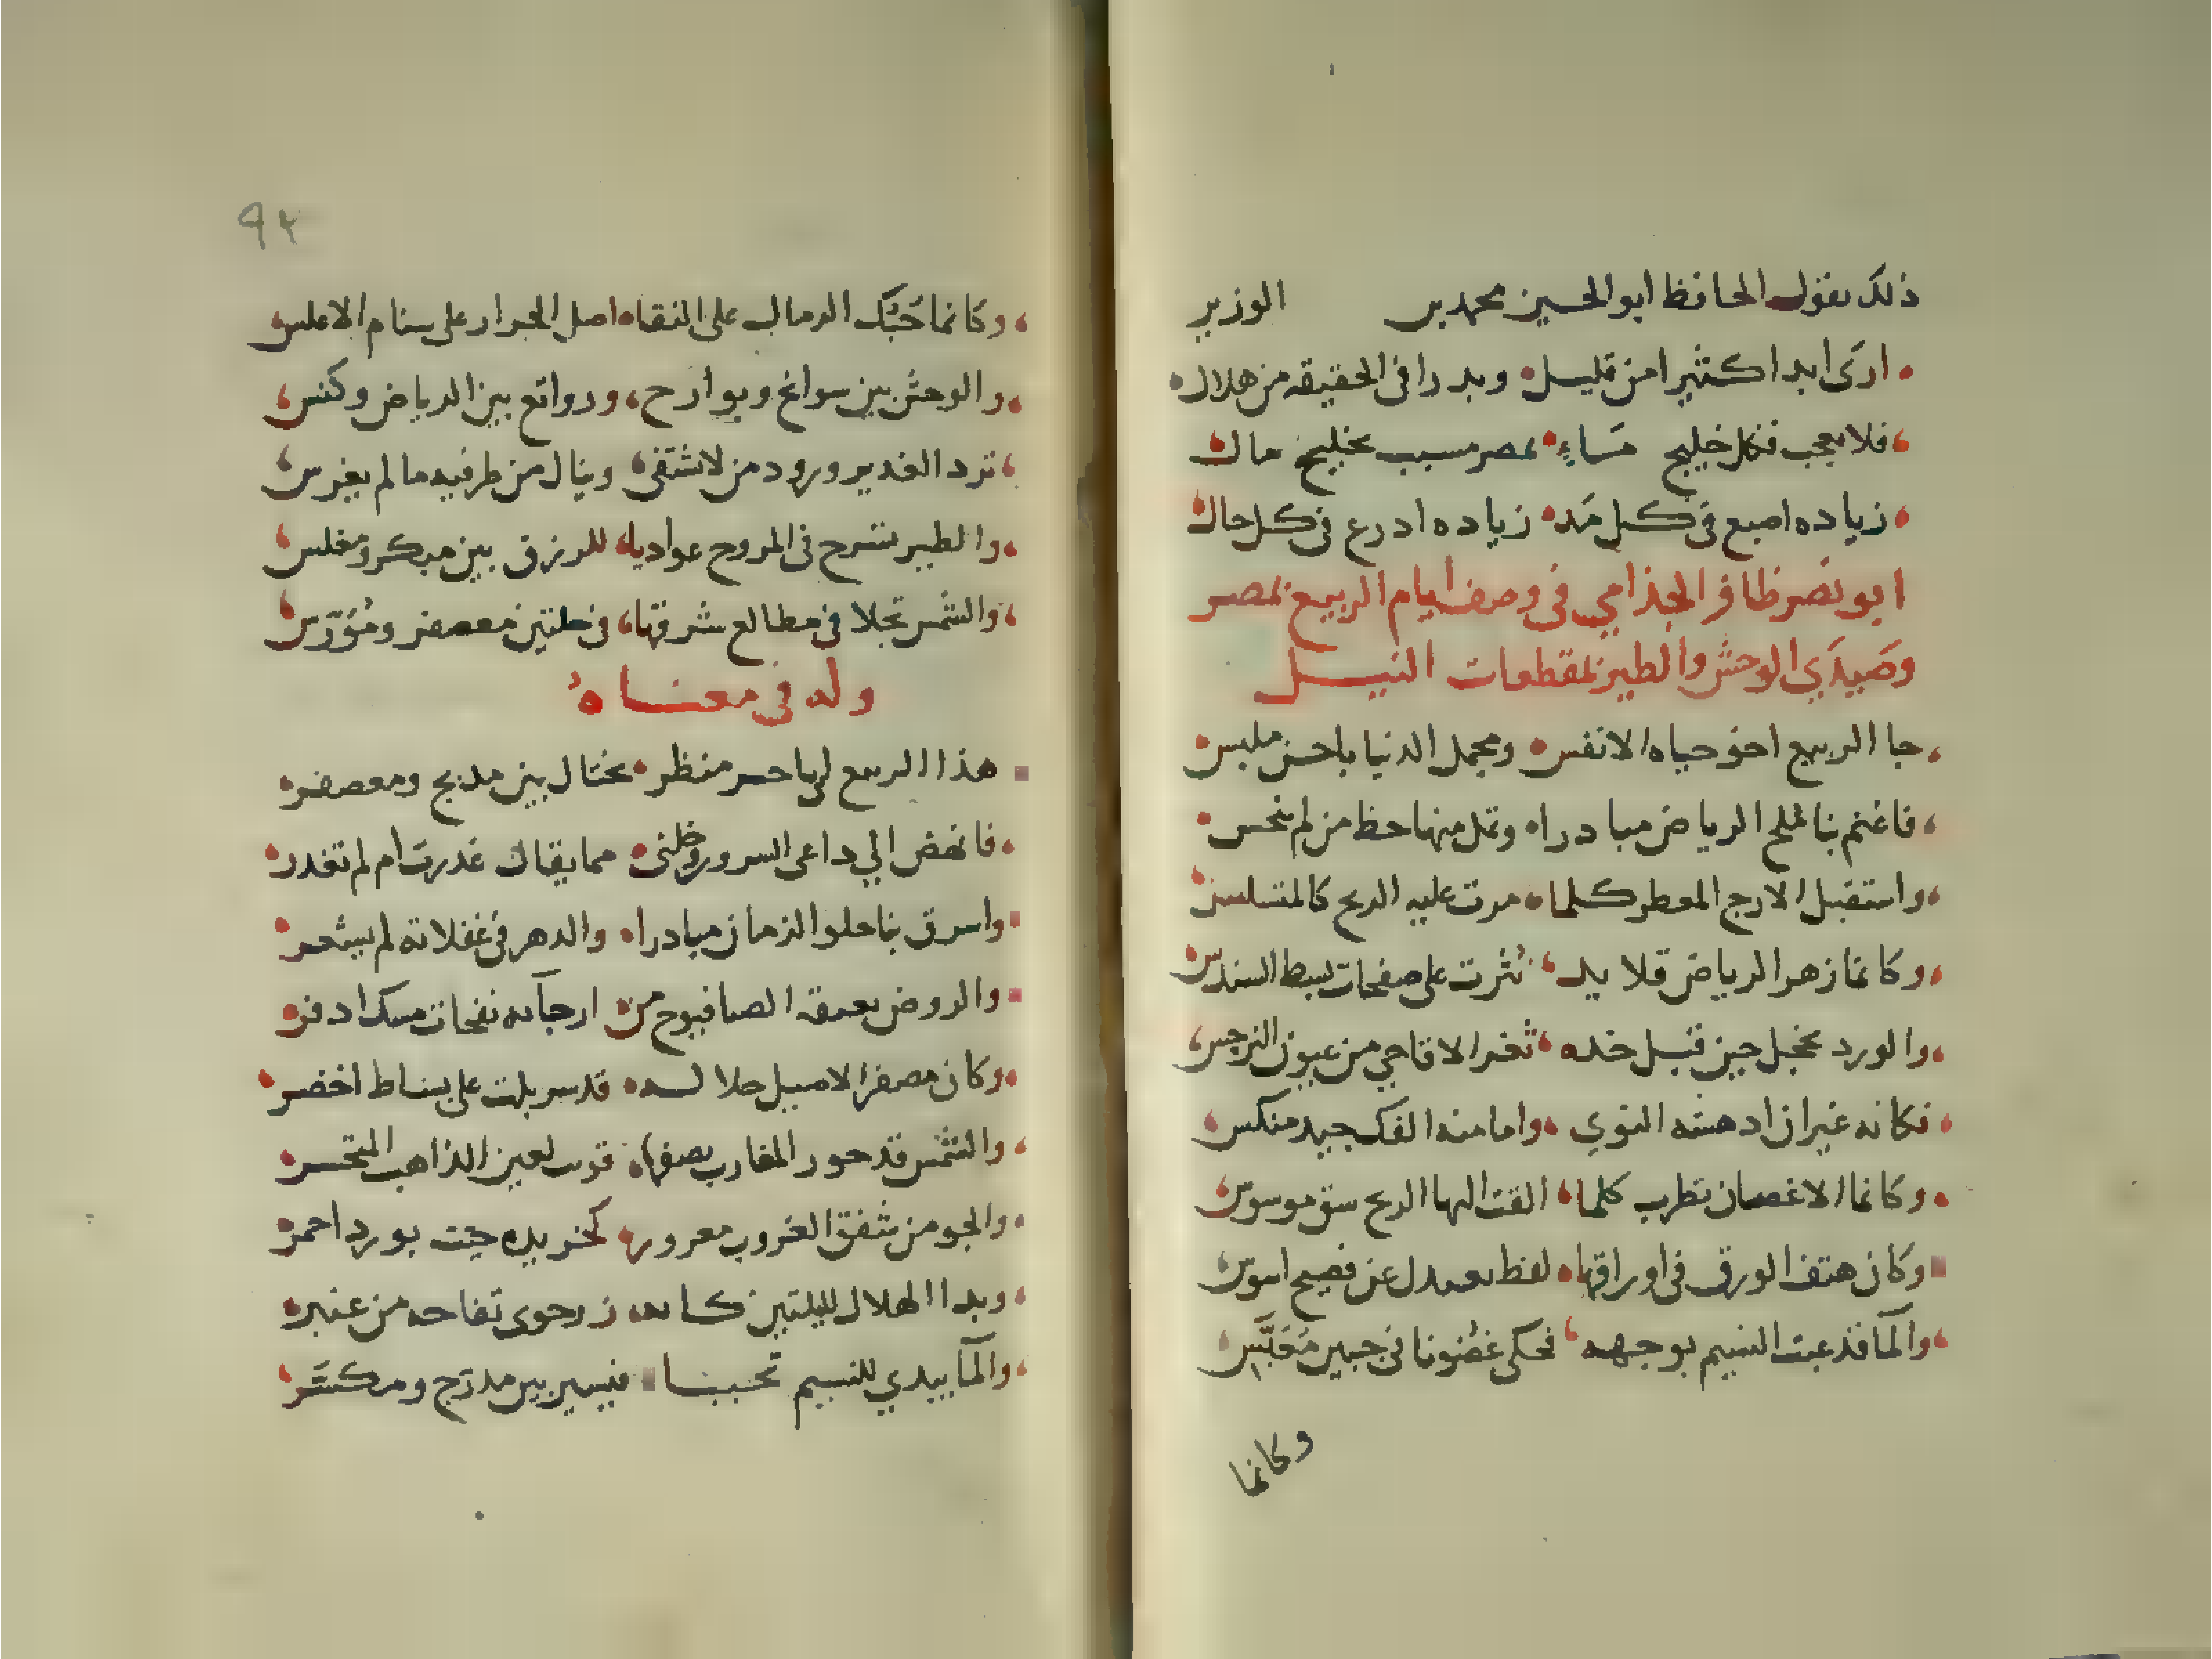 ذلك يقول الحافظ ابو الحسين محمد بن الوزير
ارى ابدا كثيرا من قليل وبدرا في الحقيقه من هلال
فلا تعجب فكل خليج مساء بمصر مسبب بخليج مال
زياده اصبع في كل مد زياده ادرع في كل حال
ابو نصر ظافر الجذامي في وصف ايام الربيع بمصر
وصيدي الوحش والطير بمقطعات النيل
جا الربيع اخو حياه الانفس ومجمل الدنيا باحسن ملبس
فاغنم بنا ملح الرياض مبادرا وتمل منها حظ من لم يبخس
واستقبل الارج المعطر كلما مرت عليه الريح كالمتسلس
وكانما زهر الرياض قلايد نثرت على صفحات بسط السندس
والورد يخجل حين قبل خده ثغر الاقاحي من عيون النرجس
فكانه غيران ادهشه النوي واما منه الفك جيد منكس
وكانما الاغصان تطرب كلما القت الها الريح سق موسوس
وكان هتف الورق في اوراقها لفظ يعدل عن فصيح اسوس
والمآ قد عبث النسيم بوجهه فحكى غضونا في جبين معبس
وكانما
٩٢
وكانما حبك الرمال على النقا اصل الجرار على سنام الاملس
والوحش بين سوانح وبوارح ورواتع بين الرياض وكنس
ترد الغدير ورود من لا شتفى وينال من طرفيه ما لم يغرس
والطير تسرح في المروج عواديا للرزق بين مبكر ومغلس
والشمس تجلا في مطالع شرقها في حلتين معصفر ومورس
وله في معناه
هذا الربيع لى باحسن منظر يختال بين مدبج ومعصفر
فانهض الي داعى السرور وخلنى مما يقال غدرت ام لم تغدر
واسرق بنا حلو الزمان مبادرا والدهر في غفلاته لم يشعر
والروض يعبقه الصبا فيوح من ارجآيه نفحات مسك ادفر
وكان مصفر الاصيل حلا لـه قد سربلت على بساط اخضر
والشمس قد حور المغارب نصفها قوب لعين الذاهب المتحسر
والجو من شفق الغروب معرور كخريده حيت بورد احمر
وبدا الهلال لليلتين كانه زرحوى تفاحه من عنبر
والمآ يبدي للنسيم تحببا فيسير بين مدرج ومكسر